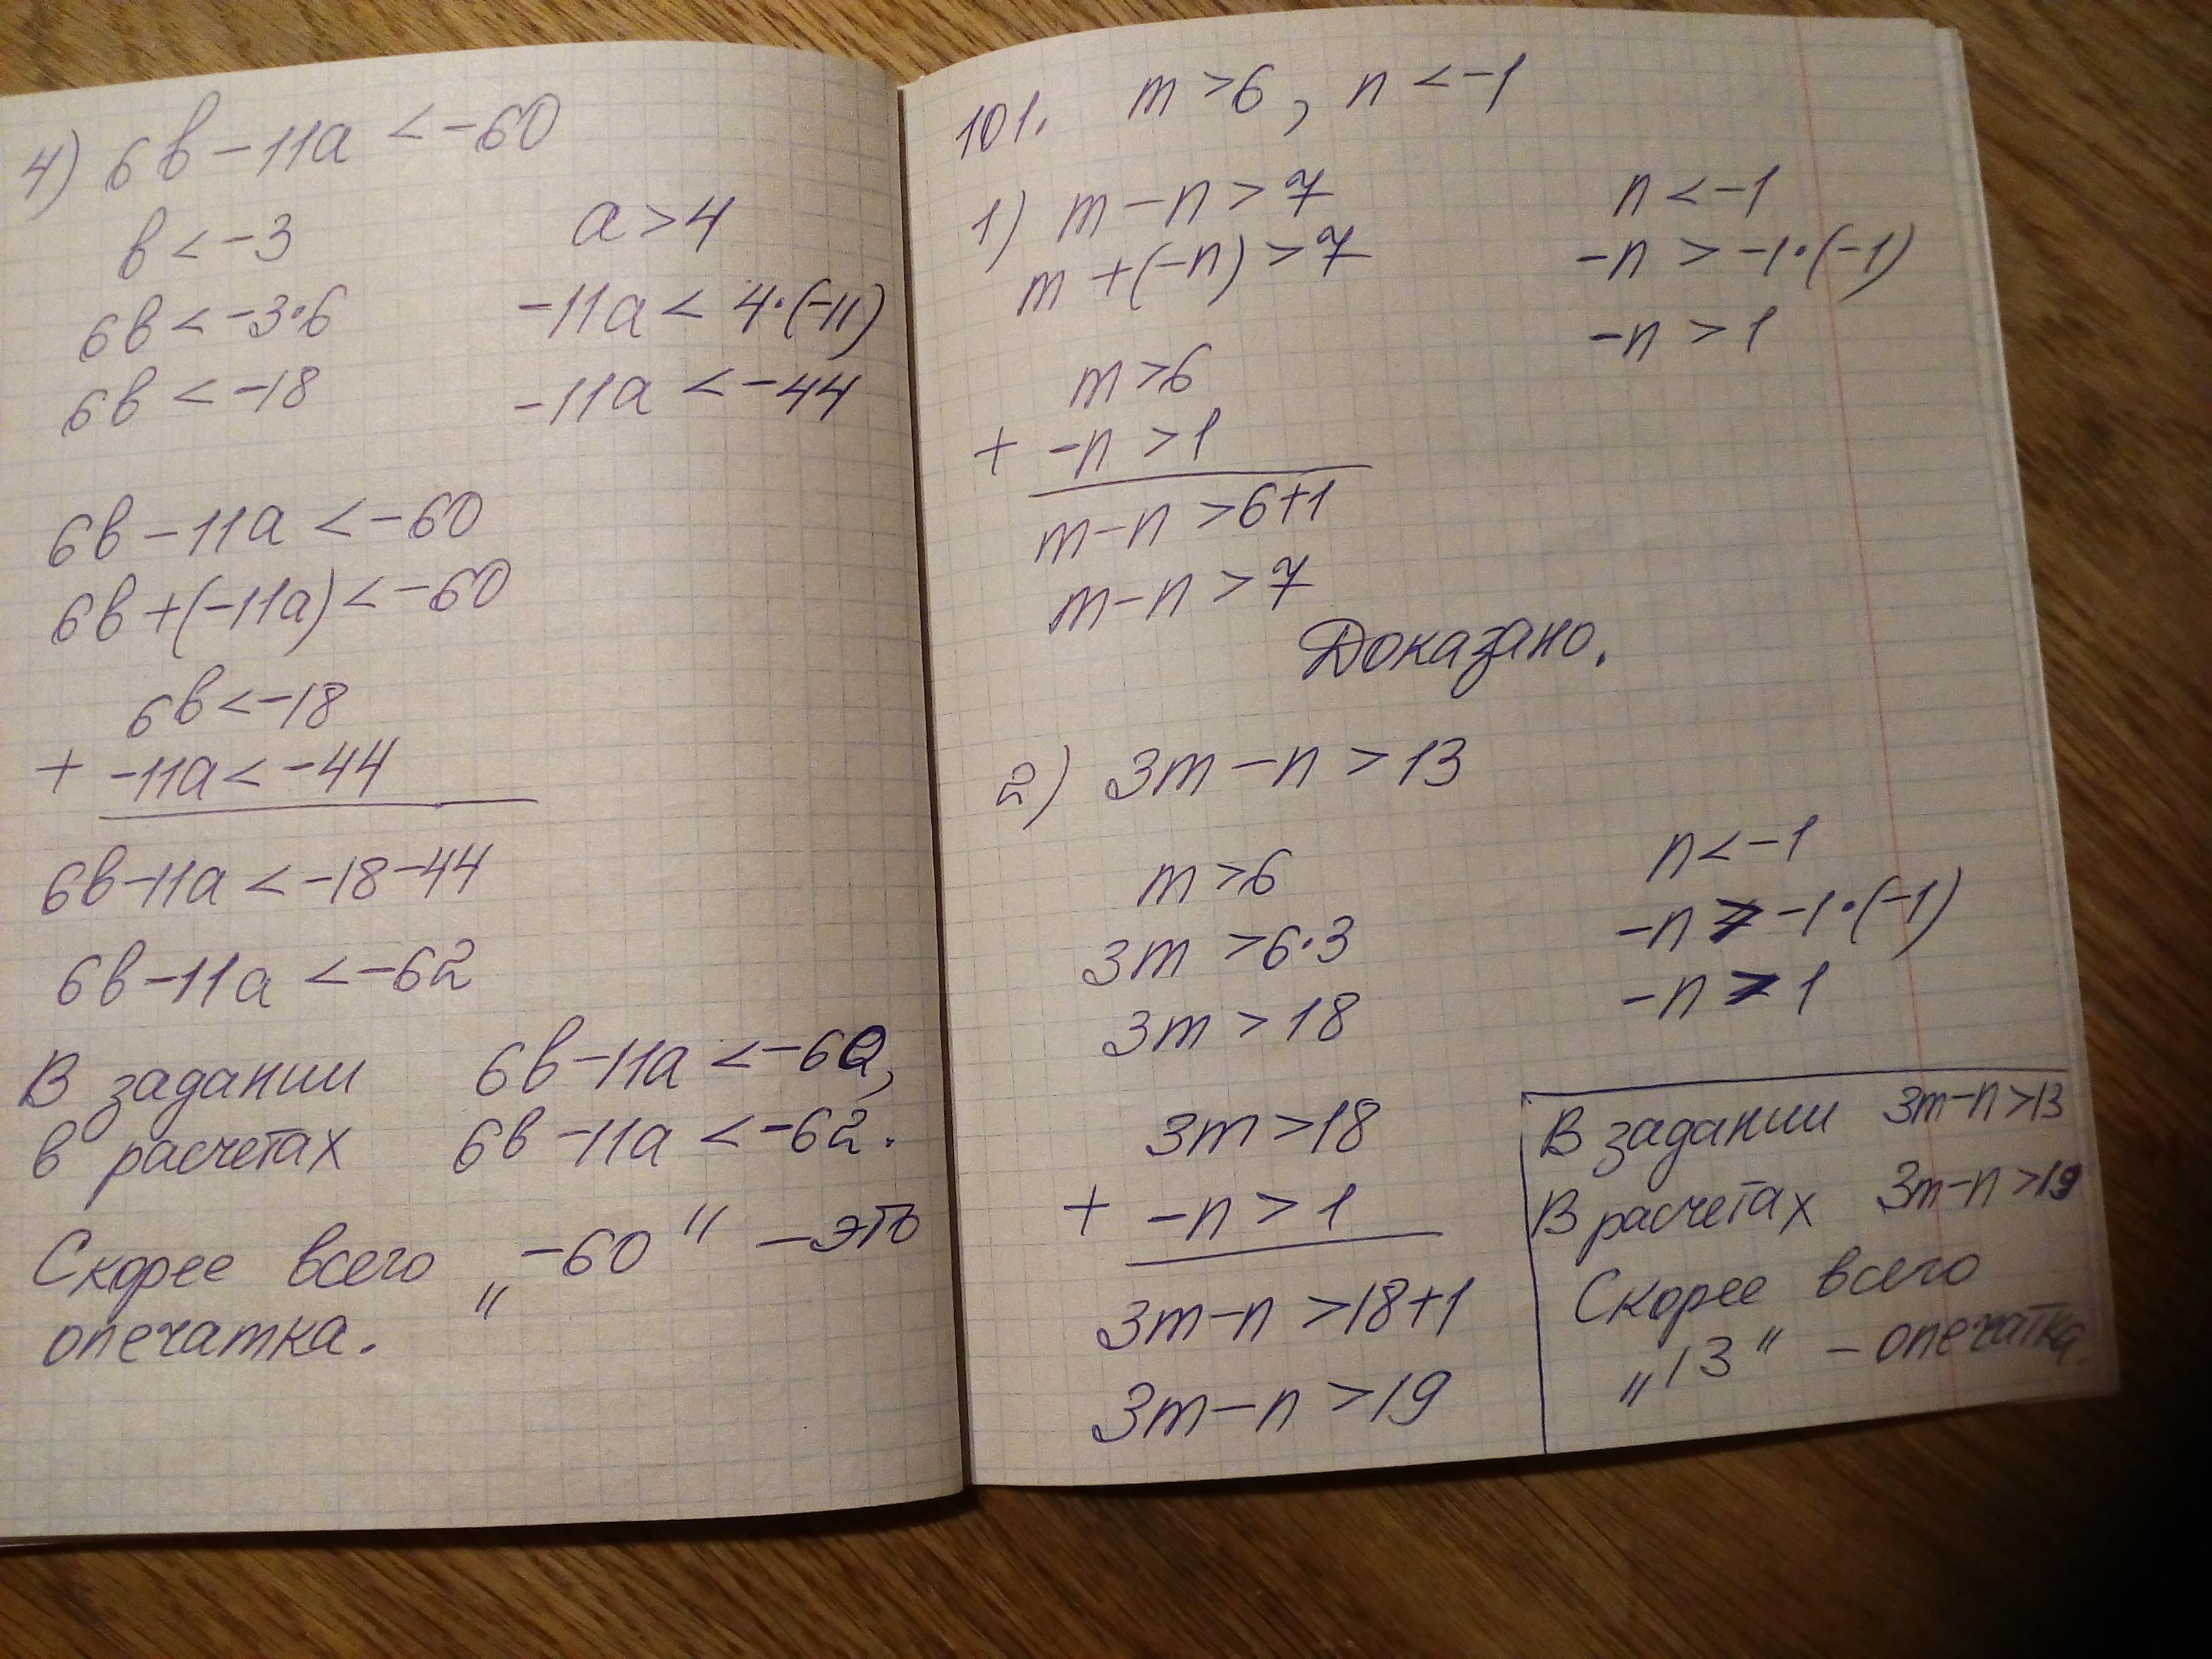 4) 6в – 11а < –60
в < –3        а > 4
6в < –3·6        –11а < 4·(–11)
6в < –18        –11а < –44
6в – 11а < –60
6в + (–11а) < –60
6в < –18
+ –11а < –44
6в – 11а < –18 – 44
6в – 11а < –62
В задании 6в – 11а < –60,
в расчетах 6в – 11а < –62.
Скорее всего „–60“ – это
опечатка.
101. m > 6, n < –1
1) m – n > 7        n < –1
m + (–n) > 7        –n > –1·(–1)
–n > 1
m > 6
+ –n > 1
m – n > 6+1
m – n > 7
Доказано.
2) 3m – n > 13
m > 6        n < –1
3m > 6·3        –n > –1·(–1)
3m > 18        –n > 1
3m > 18
+ –n > 1
3m – n > 18+1
3m – n > 19
В задании 3m – n > 13
В расчетах 3m – n > 19
Скорее всего
„13“ – опечатка.